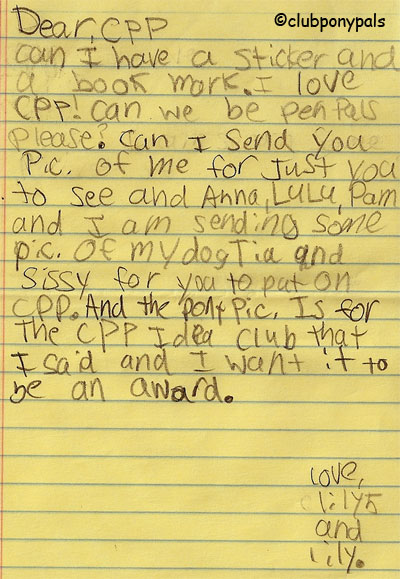 ©clubponypals
Dear, CPP
can I have a sticker and
a book mark. I love
CPP! can we be penpals
please? can I send you
Pic. of me for just you
to see and Anna, LuLu, Pam
and I am sending some
pic. of my dog Tia and
Sissy for you to put on
CPP. And the pony Pic. Is for
the CPP Idea club that
I said and I want it to
be an award.
love,
lily5
and
lily.